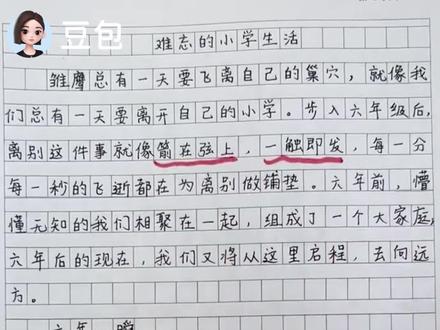 豆包
难忘的小学生活
雏鹰总有一天要飞离自己的巢穴，就像我
们总有一天要离开自己的小学。步入六年级后，
离别这件事就像箭在弦上，一触即发，每一分
每一秒的飞逝都在为离别做铺垫。六年前，懵
懂无知的我们相聚在一起，组成了一个大家庭，
六年后的现在，我们又将从这里启程，去向远
方。